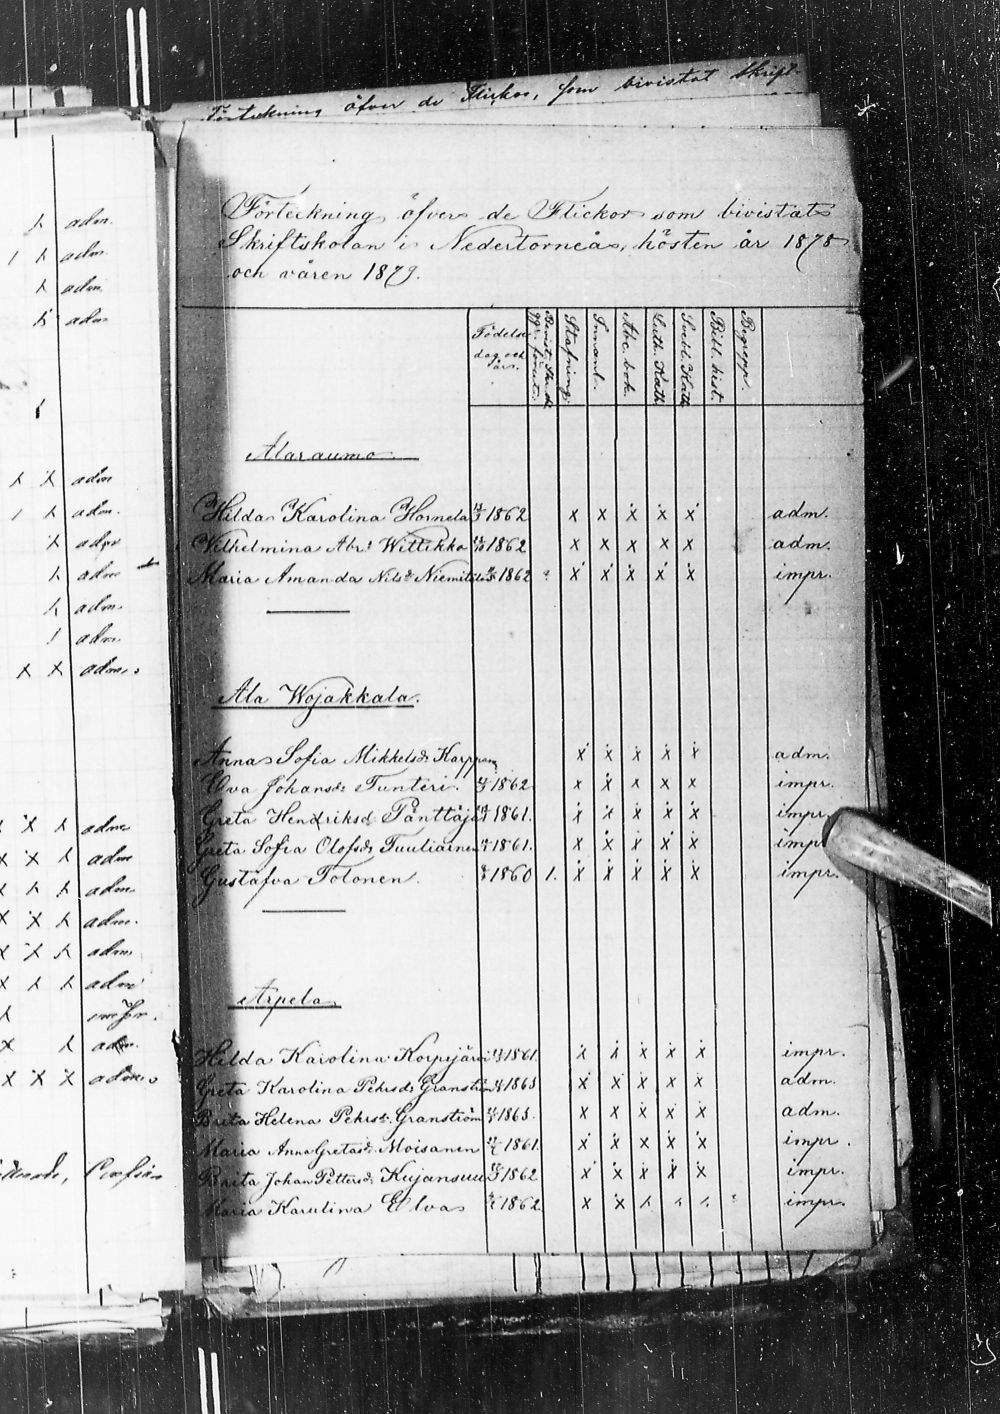 Förteckning öfver de Flickor, som bivistat Skrift-
Förteckning öfver de Flickor som bivistat
Skriftskolan i Nedertorneå, hösten år 1878
och våren 1879.
Födelse
dag och
år.
Stafning
Innanl.
Abc. bok.
Luth. Kath.
Svebl. Kath.
Bibl. hist.
Begrepp.
Alaraumo
Hilda Karolina Hornela 1862 x x x x x adm.
Vilhelmina Abr: Wittikko 1862 x x x x x adm.
Maria Amanda Nilsd: 1862 x x x x x impr.
Ala Wojakkala.
Anna Sofia Mikkelsd: x x x x x adm.
Eva Johansd: Tunteri. 1862 x x x x x impr.
Greta Hendriksd 1861. x x x x x impr.
Greta Sofia Olofsd: 1861. x x x x x impr
Gustafva Tolonen. 1860 1. x x x x x impr.
Arpela
Hilda Karolina Korpijärvi 1861. x x x x x impr.
Greta Karolina Pehrsd: Granström 1863 x x x x x adm.
Brita Helena Pehrsd: Granström 1863. x x x x x adm.
Maria Anna Gretasd: Moisanen 1861. x x x x x impr.
Brita Johan Pettersd: Kujansuu 1862 x x x x x impr.
Maria Karolina Elvas 1862 x x x x x impr.
adm.
adm.
adm
adm
adm
adm.
adm
adm
adm.
adm
adm.
adm
adm
adm
adm.
adm
adm
impr.
adm.
adm.